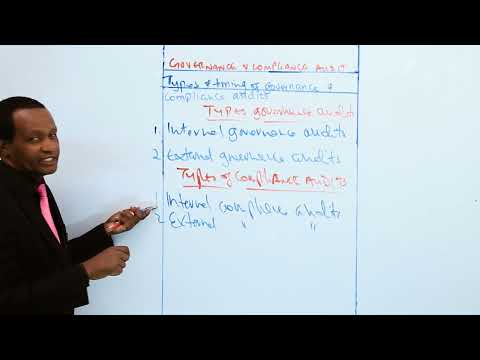 GOVERNANCE & COMPLIANCE AUDIT
Types & timing of governance &
compliance audits
TYPES governance audits
1. Internal governance audits
2. External governance audits
Types of COMPLIANCE AUDITS
1. Internal compliance audits
2. External " "